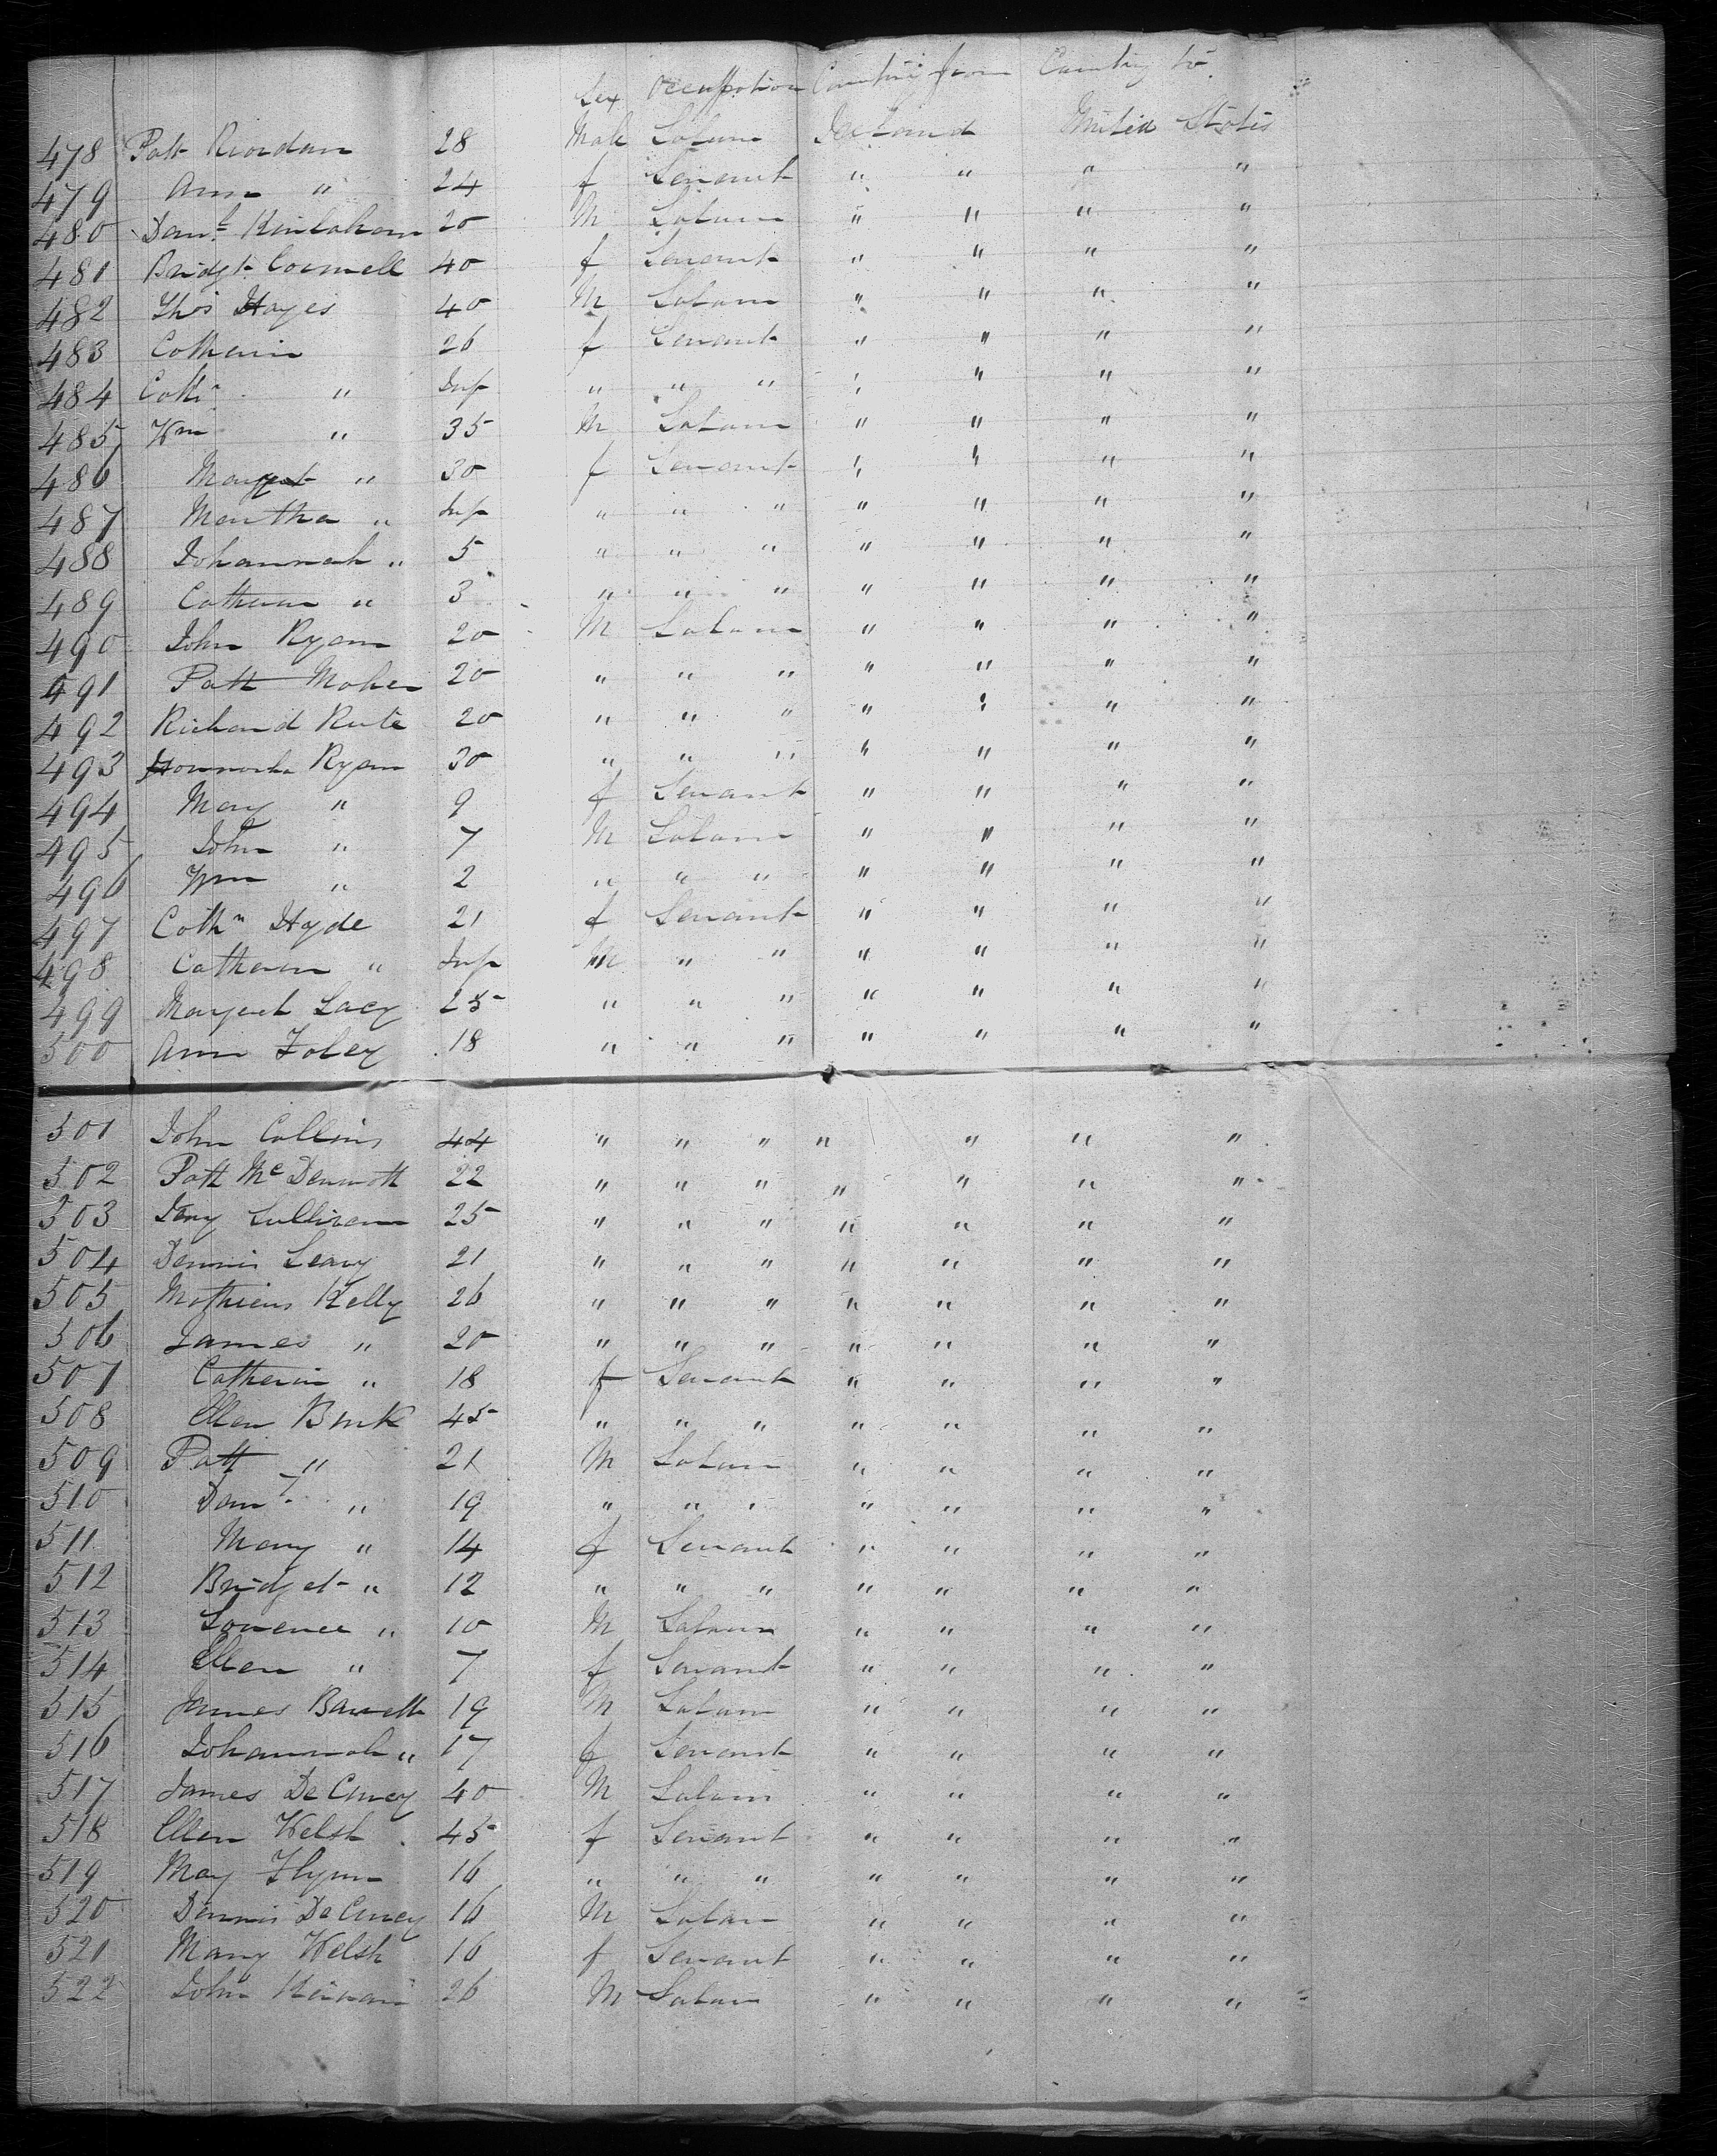 Sex Occupation Country from Country to
478 Patt Riordan 28 Male Labour Ireland United States
479 Ann " 24 f Servant " " " "
480 Danl 20 M Labour " " " "
481 Bridgt Connell 40 f Servant " " " "
482 Thos Hayes 40 M Labour " " " "
483 Catherin 26 f Servant " " " "
484 Cath " Inf " " " " " " "
485 Wm " 35 M Labour " " " "
486 Margret " 30 f Servant " " " "
487 Martha " Inf " " " " " " "
488 Johannah " 5 " " " " " " "
489 Catherin " 3 " " " " " " "
490 John Ryan 20 M Labour " " " "
491 Patt Maher 20 " " " " " " "
492 Richard 20 " " " " " " "
493 Honnorah Ryan 30 " " " " " " "
494 Mary " 9 f Servant " " " "
495 John " 7 M Labour " " " "
496 Wm " 2 " " " " " " "
497 Cathn Hyde 21 f Servant " " " "
498 Catherin " Inf M " " " " " "
499 Margret Lacy 25 " " " " " " "
500 Ann Foley 18 " " " " " " "
501 John Collins 44 " " " " " " "
502 Patt McDermott 22 " " " " " " "
503 Sullivan 25 " " " " " " "
504 Dennis Leary 21 " " " " " " "
505 Kelly 26 " " " " " " "
506 James " 20 " " " " " " "
507 Catherin " 18 f Servant " " " "
508 Ellen Burk 45 " " " " " " "
509 Patt " 21 M Labour " " " "
510 Danl " 19 " " " " " " "
511 Mary " 14 f Servant " " " "
512 Bridget " 12 " " " " " " "
513 Lawrence " 10 M Labour " " " "
514 Ellen " 7 f Servant " " " "
515 James Barrett 19 M Labour " " " "
516 Johannah " 17 f Servant " " " "
517 James De Curcy 40 M Labour " " " "
518 Ellen Welsh 45 f Servant " " " "
519 May Flynn 16 " " " " " " "
520 Dennis De Curcy 16 M Labour " " " "
521 Mary Welsh 16 f Servant " " " "
522 John 26 M Labour " " " "